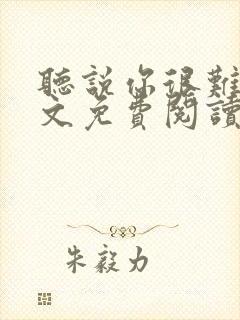 聽說你很難
文免費閱讀
朱毅力